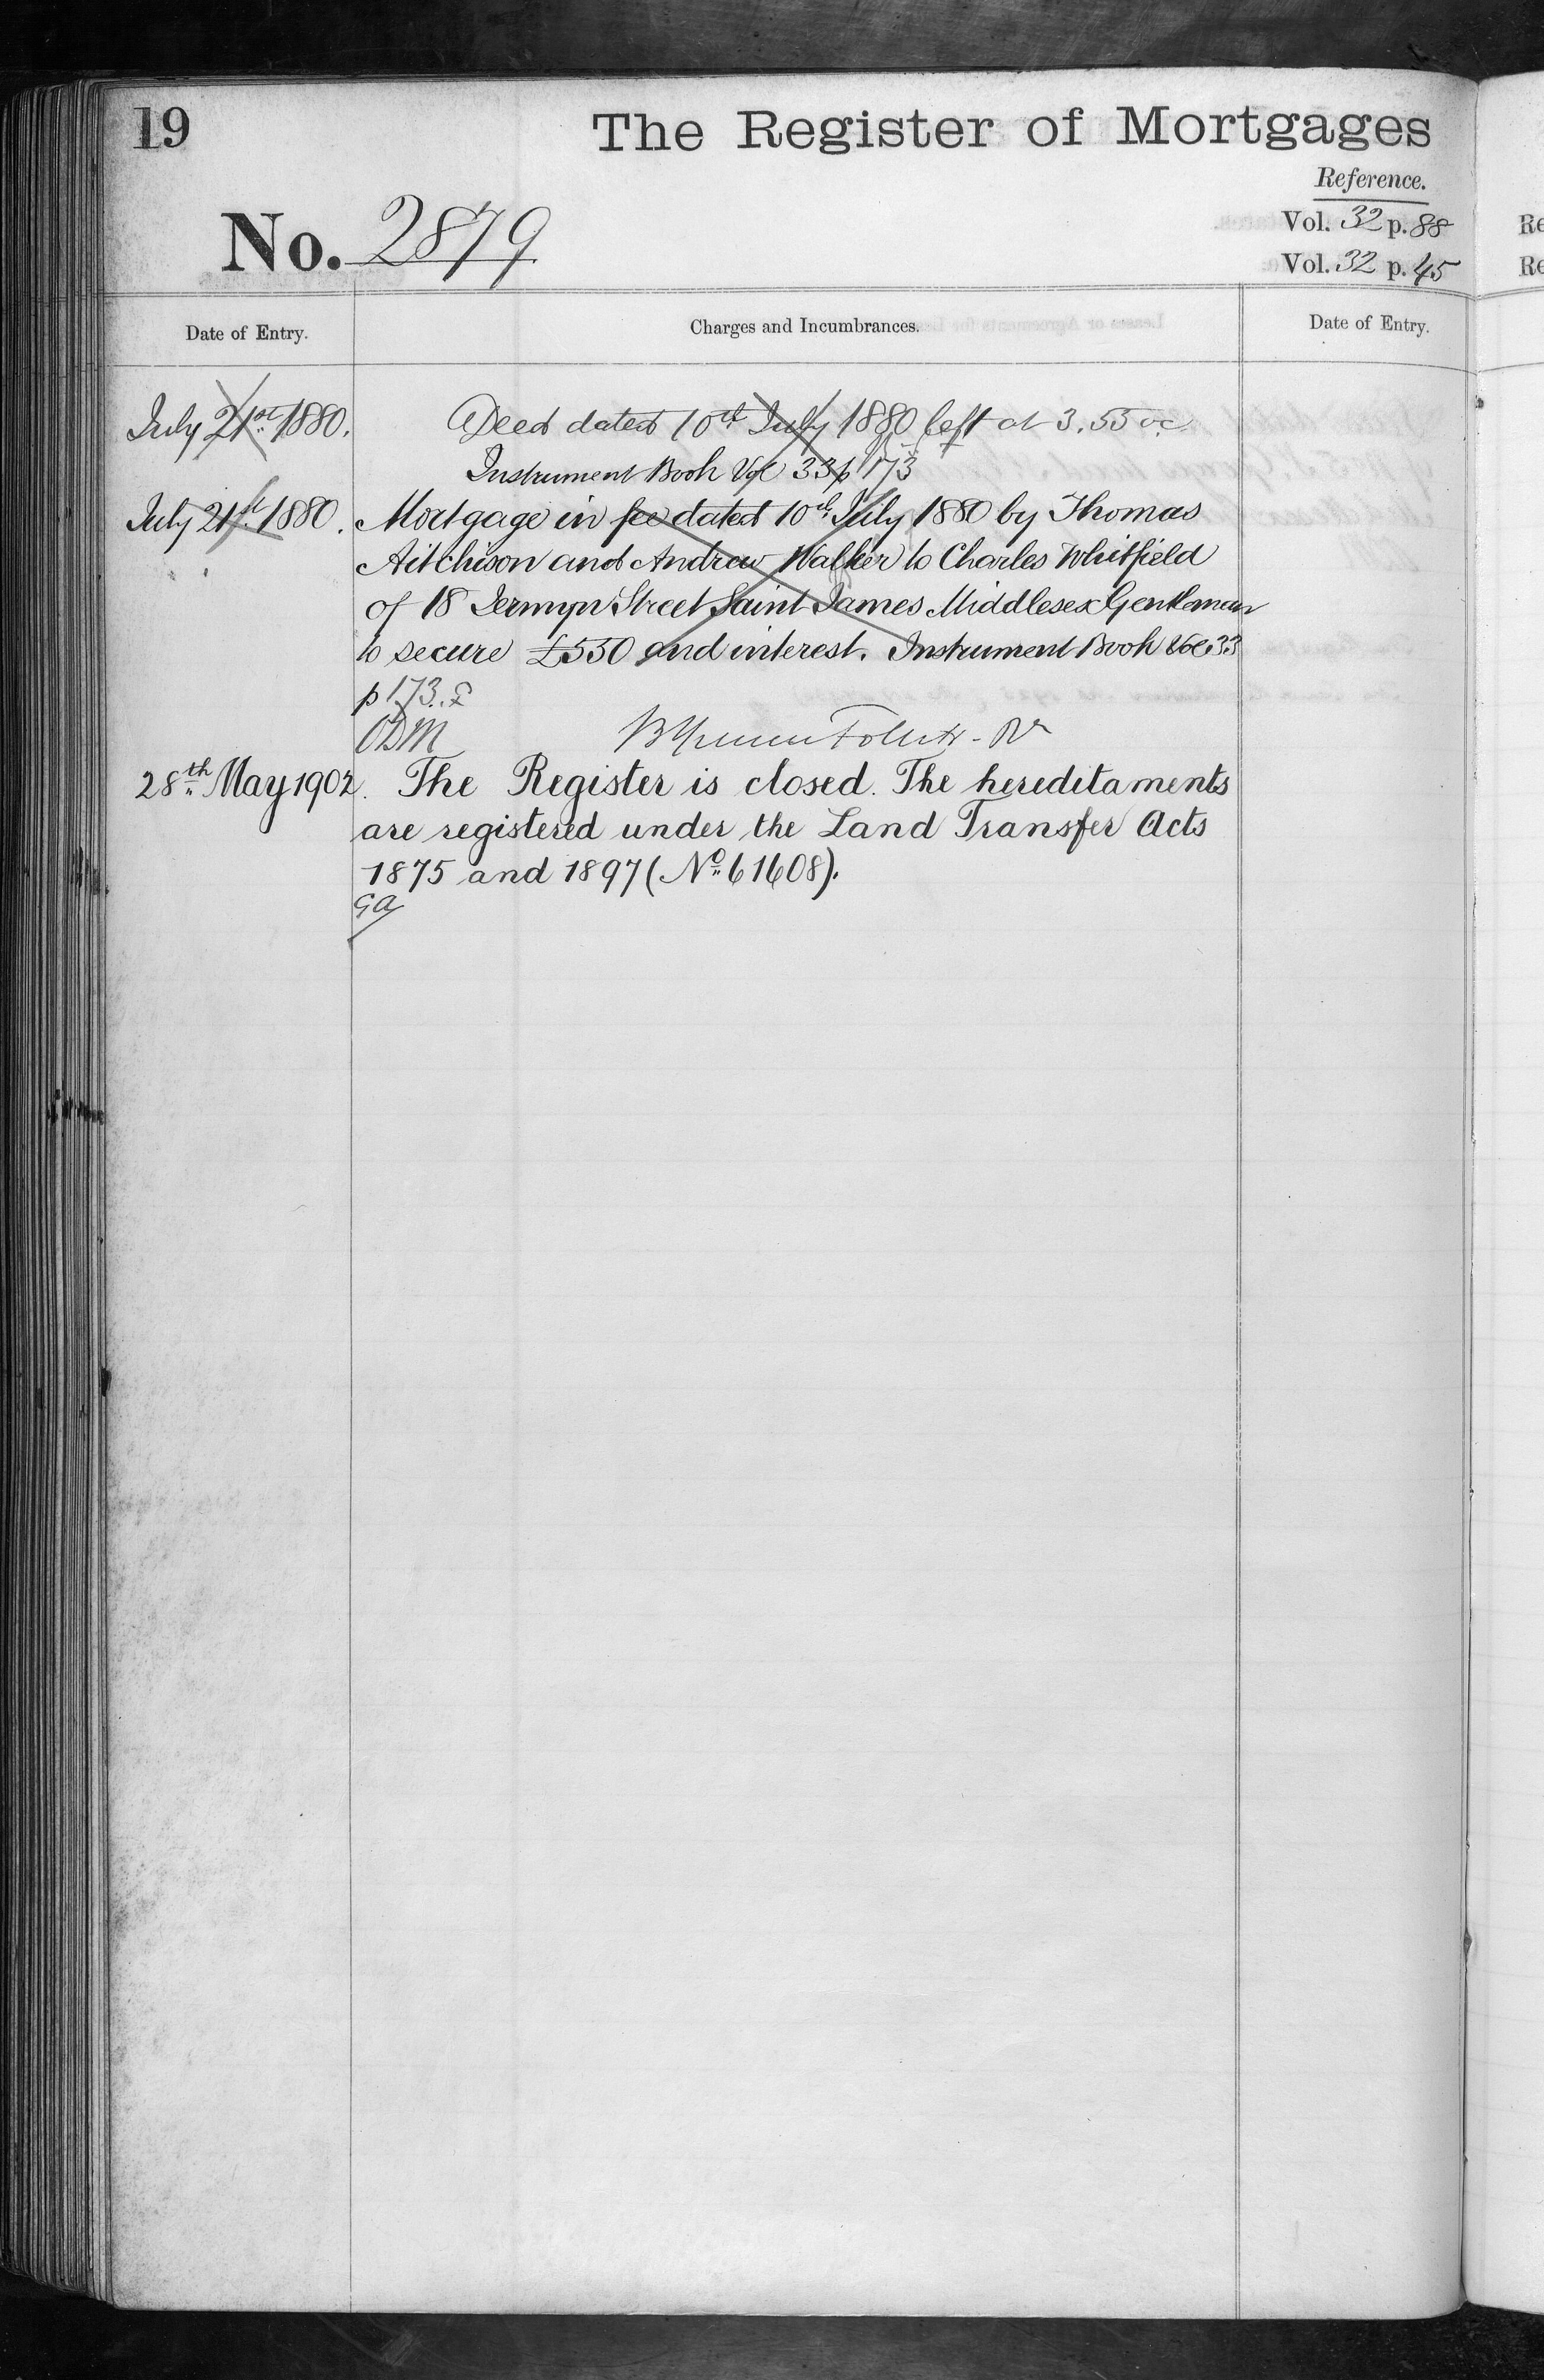 19
The Register of Mortgages
Reference.
No. 2879
Vol. 32 p. 88
Vol. 32 p. 45
Date of Entry.
Charges and Incumbrances.
Date of Entry.
July 21st 1880.
Deed dated 10th July 1880 left at 3.55
Instrument Book Vol 33 p 173
July 21st 1880.
Mortgage in fee dated 10th July 1880 by Thomas
Aitchison and Andrew Walker to Charles Whitfield
of 18 Jermyn Street Saint James Middlesex Gentleman
to secure £550 and interest. Instrument Book Vol 33
p 173.
28th May 1902. The Register is closed. The hereditaments
are registered under the Land Transfer Acts
1875 and 1897 (No. 61608).
GA
Re
Re